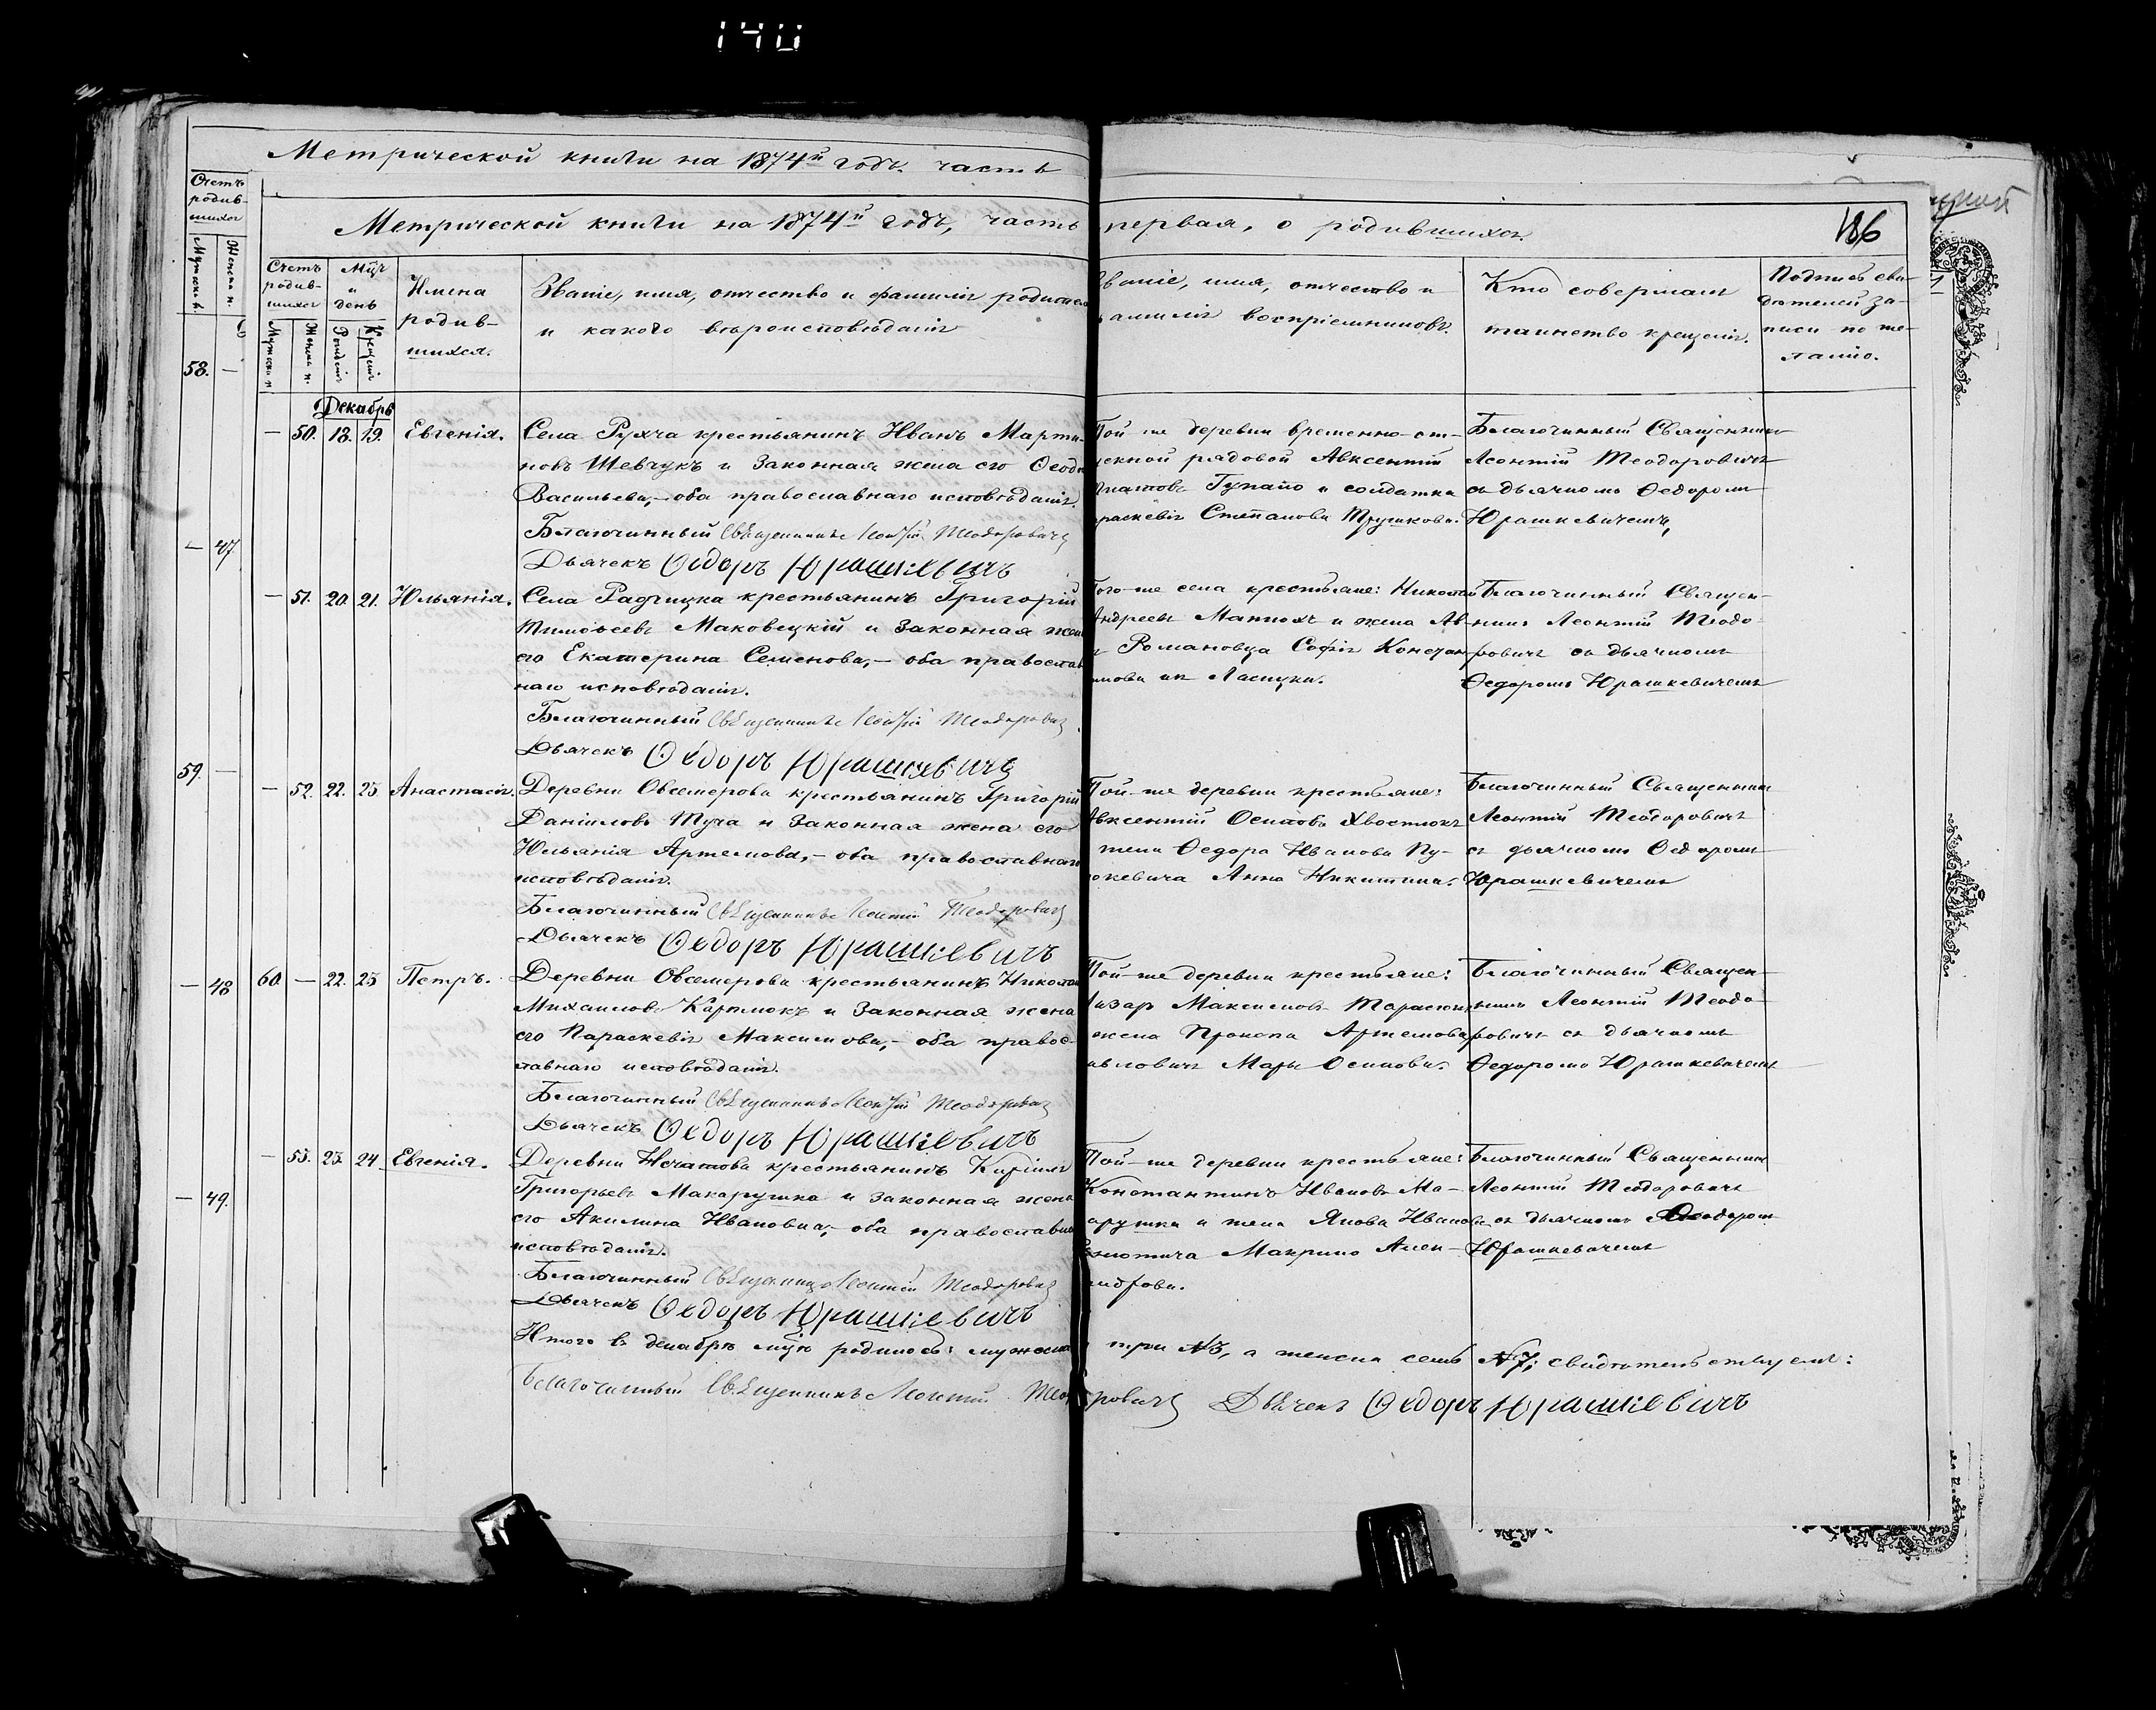 140
Метрической книги на 1874й годъ. часть
Счетъ
родив-
шихся
Мужеска п.
Женска п.
58. —
— 47.
59. —
— 48
— 49.
Метрической книги на 1874й годъ, часть первая, о родившихся.
186
Счетъ
родив-
шихся
Мужеска п.
Женска п.
Мцъ
и
день
Рожденія
Крещенія
Имена
родив-
шихся.
Званіе, имя, отчество и фамилія родителей
и какого вѣроисповѣданія
Званіе, имя, отчество и
фамилія воспріемниковъ.
Кто совершалъ
таинство крещенія.
Подпись сви-
дѣтелей за-
писи по же-
ланію.
Декабрь
— 50. 18. 19. Евгенія.
Села Рухча крестьянинъ Иванъ Марти-
новъ Шевчукъ и законная жена его Ѳеод
Васильева,— оба православнаго исповѣданія.
Благочинный Священникъ Леонтій Теодоровичъ
Дьячекъ Ѳедоръ Юрашкевичъ
Той-же деревни временно-от-
скной рядовой Авксентій
Игнатовъ и солдатка
араскевія Степанова Трушкова.
Благочинный Священникъ
Леонтій Теодоровичъ
съ дьячкомъ Ѳедоромъ
Юрашкевичемъ,
— 51. 20. 21. Юльянія.
Села Радчицка крестьянинъ Григорій
Тимоѳеевъ Маковецкій и законная жена
его Екатерина Семенова,— оба православ
наго исповѣданія.
Благочинный Священникъ Леонтій Теодоровичъ
Дьячекъ Ѳедоръ Юрашкевичъ
Того-же села крестьяне: Николай
Андреевъ и жена Ав-
Романовца Софія Констан
Благочинный Священ-
никъ Леонтій Теодо-
ровичъ съ дьячкомъ
Ѳедоромъ Юрашкевичемъ
— 52. 22. 23 Анастасія.
Деревни Овсемерова крестьянинъ Григорій
Даніиловъ Туча и законная жена его
Юльянія Артемова,— оба православнаго
исповѣданія.
Благочинный Священникъ Леонтій Теодоровичъ
Дьячекъ Ѳедоръ Юрашкевичъ
Той-же деревни крестьяне:
Авксентій Осиповъ Хвостюкъ
жена Ѳедора Иванова Пу-
кевича Анна Никитина.
Благочинный Священникъ
Леонтій Теодоровичъ
съ дьячкомъ Ѳедоромъ
Юрашкевичемъ
60. — 22. 23 Петръ.
Деревни Овсемерова крестьянинъ Николай
Михаиловъ Карпюкъ и законная жена
его Параскевія Максимова,— оба правос-
лавнаго исповѣданія.
Благочинный Священникъ Леонтій Теодоровичъ
Дьячекъ Ѳедоръ Юрашкевичъ
Той-же деревни крестьяне:
Лазаръ Максимовъ Тарасюкъ
жена Прокопа Артемова
авловичъ Марья Осипова.
Благочинный Священ-
никъ Леонтій Теодо-
ровичъ съ дьячкомъ
Ѳедоромъ Юрашкевичемъ
— 53. 23. 24 Евгенія.
Деревни Нечатова крестьянинъ Кирилъ
Григорьевъ Макарушка и законная жена
его Акилина Ивановна,— оба православнаго
исповѣданія.
Благочинный Священникъ Леонтій Теодоровичъ
Дьячекъ Ѳедоръ Юрашкевичъ
Той-же деревни крестьяне:
Константинъ Ивановъ Ма-
арушка и жена Якова Иванова
Макрина Алек-
андрова.
Благочинный Священникъ
Леонтій Теодоровичъ
съ дьячкомъ Ѳеодоромъ
Юрашкевичемъ
Итого въ декабрѣ мцѣ родилось: мужеска три №3, а женска семь №7; свидѣтельствуемъ:
Благочинный Священникъ Леонтій Теодоровичъ Дьячекъ Ѳедоръ Юрашкевичъ